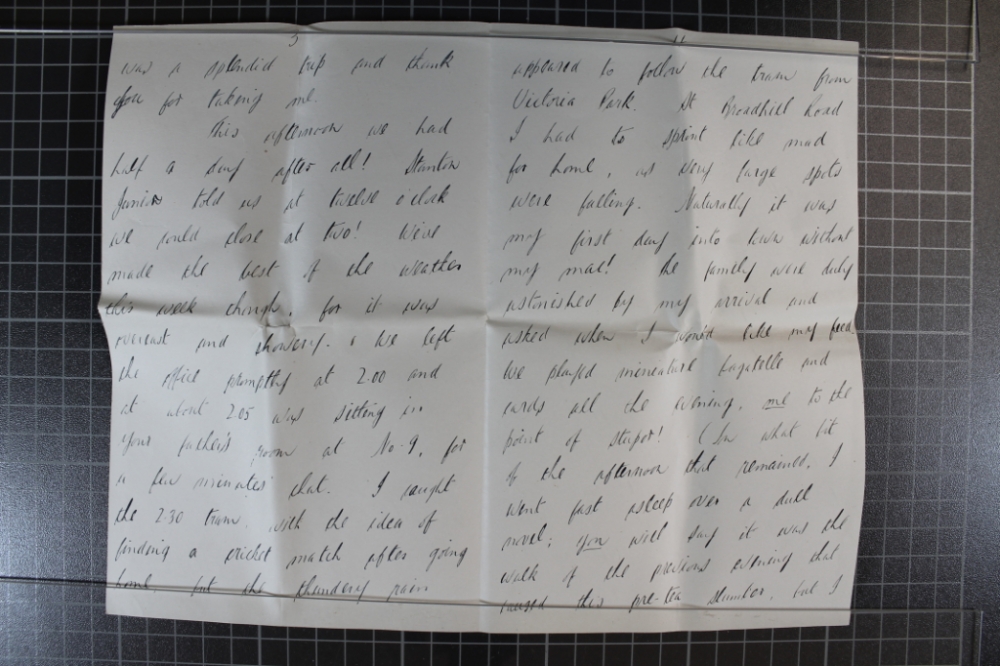 3
was a splendid trip and thank
you for taking me.
This afternoon we had
half a day after all! Stanton
Junior told us at twelve o'clock
we could close at two! We've
made the best of the weather
this week though, for it was
overcast and showery. & We left
the office promptly at 2.00 and
at about 2.05 was sitting in
your father's room at No. 9, for
a few minutes' chat. I caught
the 2.30 tram with the idea of
finding a cricket match after going
home, but the thundery rain
4
appeared to follow the tram from
Victoria Park. At Broadhill Road
I had to sprint like mad
for home, as very large spots
were falling. Naturally it was
my first day into town without
my mac! The family were duly
astonished by my arrival and
asked when I would like my feed
We played mineature bagatelle and
cards all the evening, me to the
point of stupor! (In what bit
of the afternoon that remained, I
went fast asleep over a dull
novel; you will say it was the
walk of the previous evening that
caused this pre-tea slumber, but I